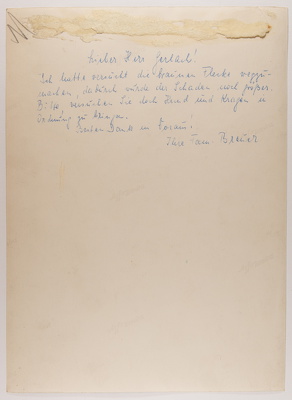 Lieber Herr Gerlach!
Ich hatte versucht die braunen Flecke wegzu-
machen, dadurch wurde der Schaden noch größer.
Bitte, versuchen Sie doch Hand und Kragen in
Ordnung zu bringen.
Besten Dank im Voraus!
Ihre Fam. Brauer